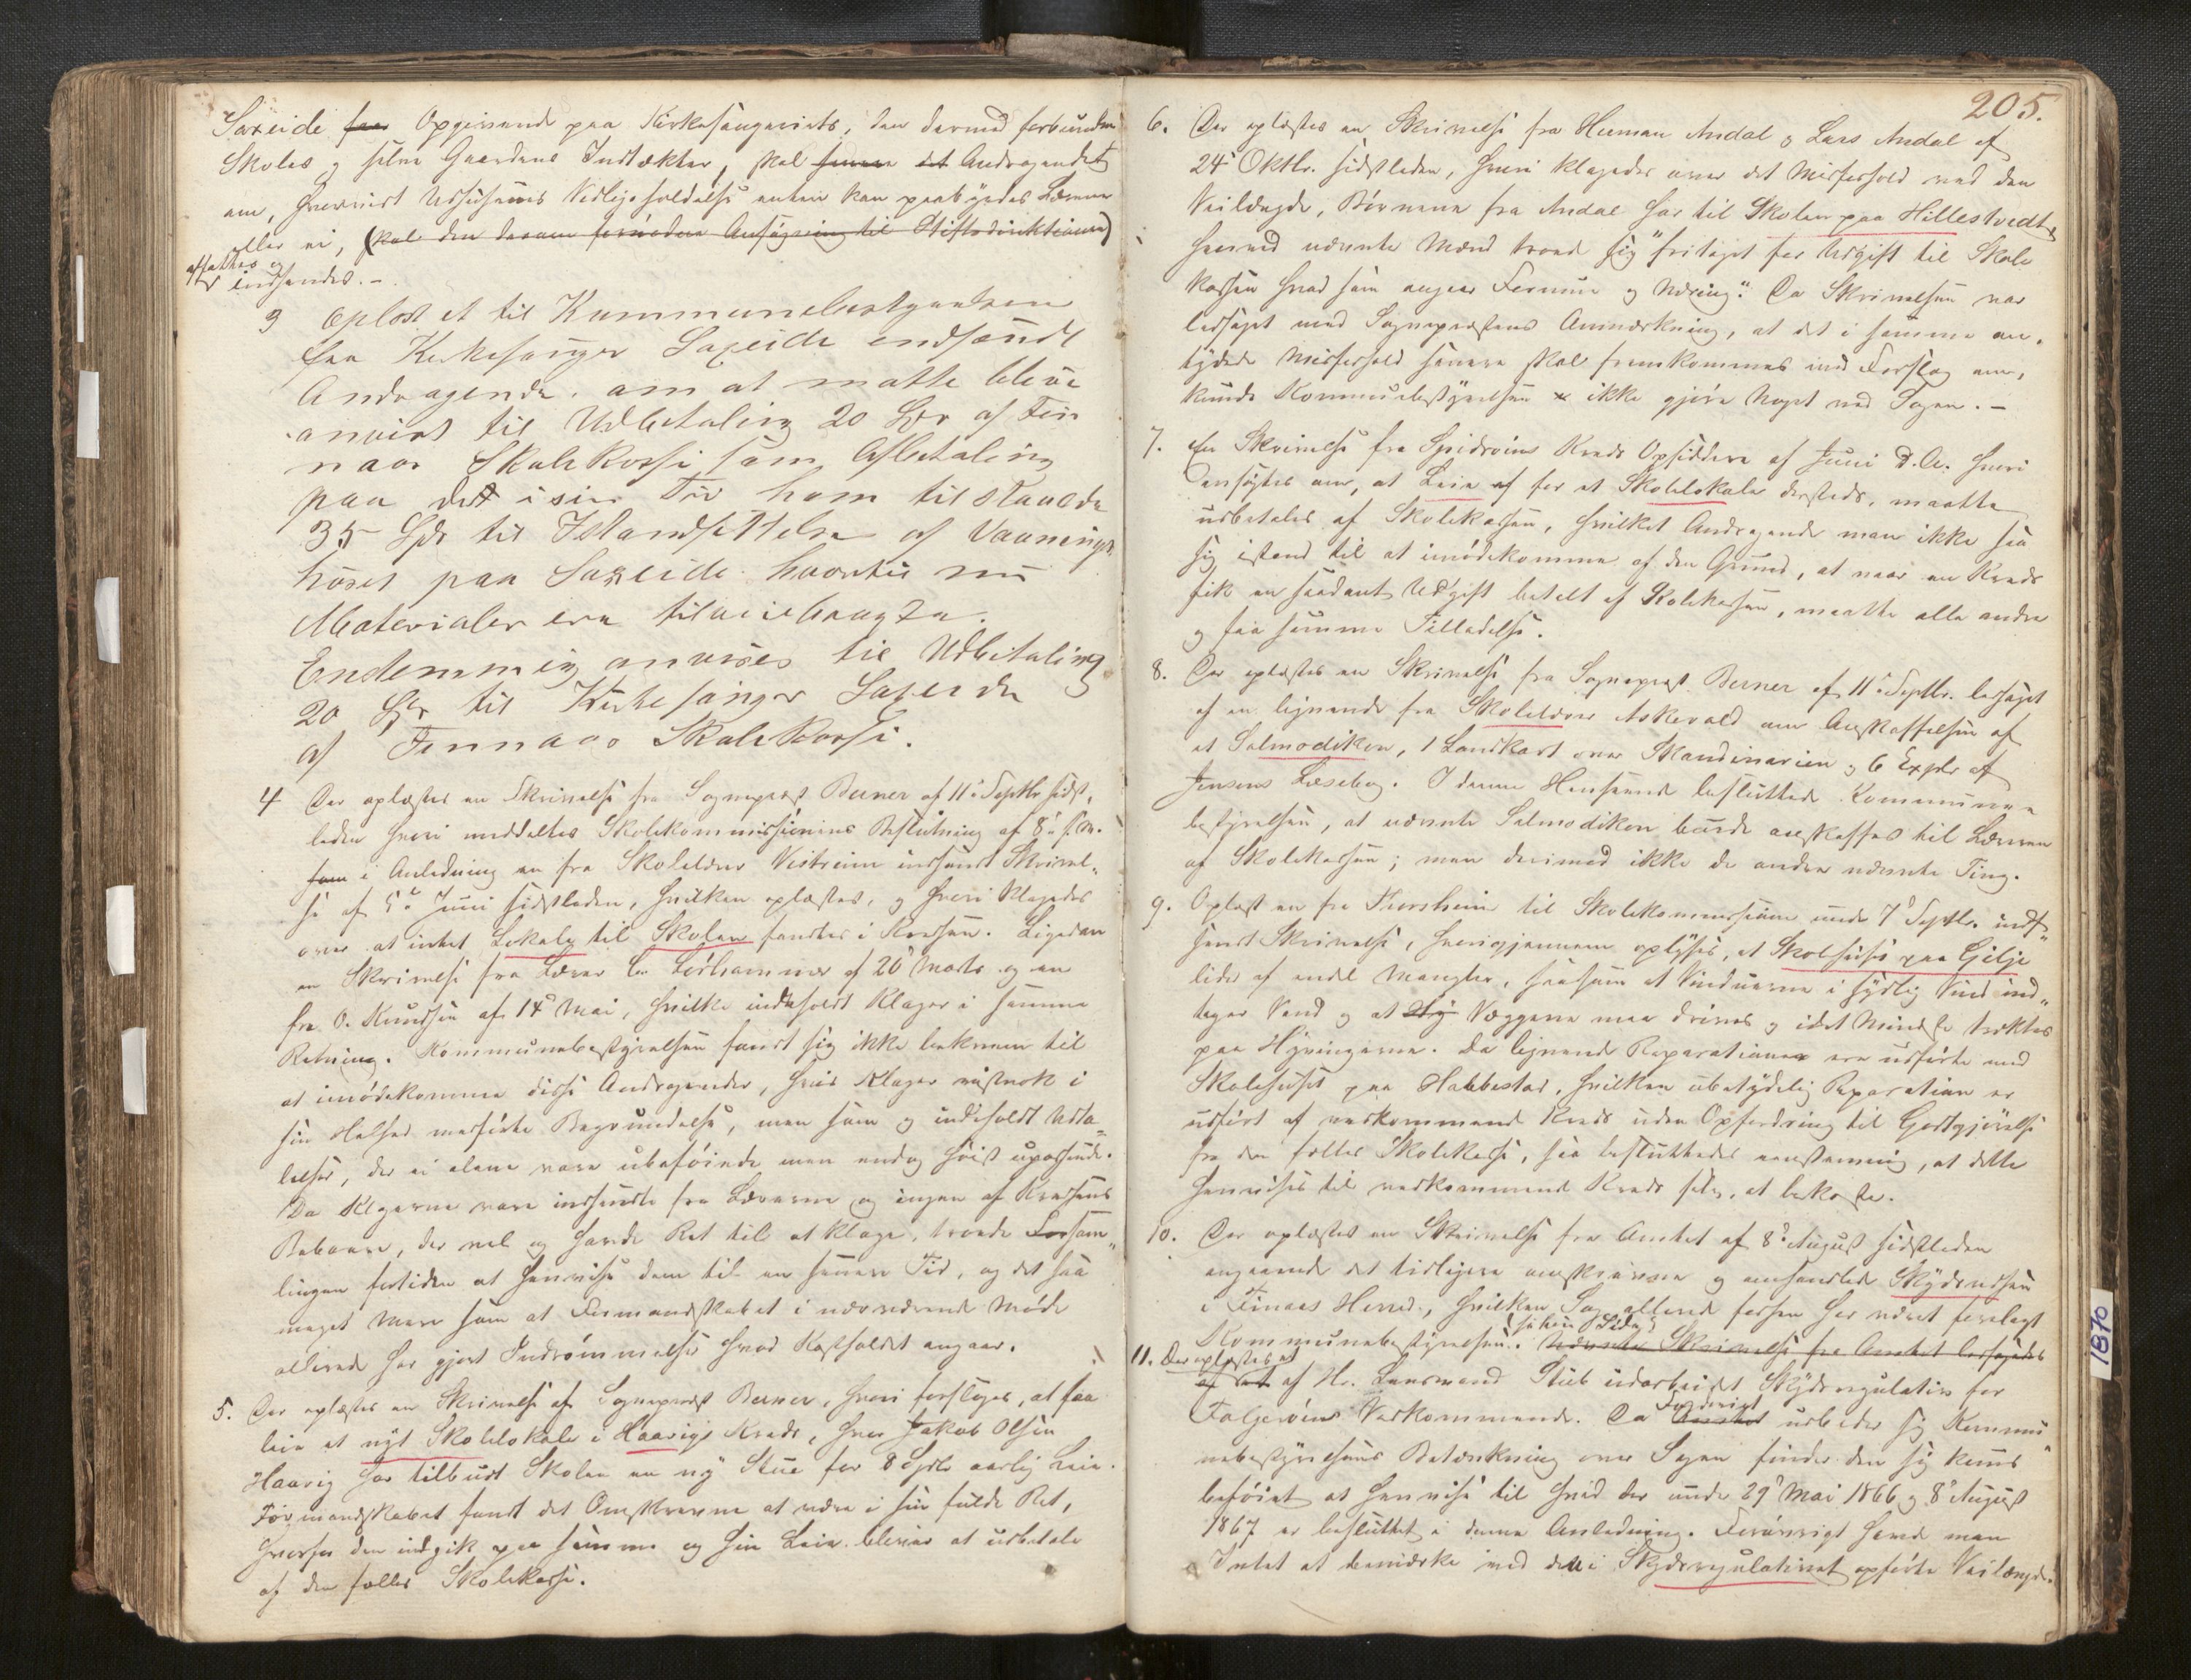 Saxeide ~~faar~~ Opgivende paa Kirkesangeriets, den dermed forbundne
Skoles og selve Gaardens Indtækter, skal ~~senere~~ ~~det~~ Andragendet
om, hvorvidt Udhusenes Vedligeholdelse enten kan paabyrdes Læreren
eller ei, ~~(skal den derom fornødne Ansøgning til Stiftsdirektionen)~~
affattes og
indsendes. -
3 Oplæst et til Kummunebestyrelsen
fra Kirkesanger Saxeide indsendt
Andragende, om at maatte blive
anvist til Udbetaling 20 Spd af Fin
naas Skolekasse som Afbetaling
paa det i sin Tid ham tilstaaede
35 Spd til Istandsættelse af Vaanings
huset paa Saxeide hvortil nu
Materialer ere tilveiebragte.
Endemmig anvises til Udbetaling
20 Spd til Kirkesanger Saxeide
af Finnaas Skolekasse.
4 Der oplæstes en Skrivelse fra Sogneprest Berner af 11te Septbr sidst-
leden hvori meddeltes Skolekommissionens Beslutning af 8de s. M.
~~som~~ i Anledning en fra Skolelærer Vestreim indsendt Skrivel-
se af 5te Juni sidstleden, hvilken oplæstes, og hvori klagedes
over at intet Lokale til Skolen fandtes i Kredsen. Ligedan
en Skrivelse fra Lærer Lørhammer af 26 Marts og en
fra O. Knudsen af 14de Mai, hvilke indeholdt Klager i samme
Retning. Kommunebestyrelsen fandt sig ikke bekvem til
at imødekomme disse Andragender, hvis Klager vistnok i
sin Helhed medførte Begrundelse, men som og indeholdt Udta-
lelser, der ei alene vare ubeføiede men endog høist upassende.
Da Klgerne vare indsendte fra Lærerne og ingen af Kredsens
Beboere, der vel og havde Ret til at klage, troede Forsam-
lingen fortiden at henvise dem til en senere Tid, og det saa
meget mere som at Formandskabet i nærværende Møde
allerede har gjort Indrømmelser hvad Kostholdet angaar.
5. Der oplæstes en Skrivelse af Sogneprest Berner, hvori forslages, at faa
leie et nyt Skolelokale i Haavigs Kreds, hvor Jakob Olsen
Haavig har tilbudt Skolen en ny Stue for 8 Spdlr aarlig Leie.
Formandskabet fandt det Omskrevne at være i sin fulde Ret,
hvorfor den indgik paa samme og sin Leie bliver at udbetale
af den fælles Skolekasse.
205.
6. Der oplæstes en Skrivelse fra Herman Andal og Lars Andal af
24de Oktbr. sidstleden, hvori klagedes over det Misforhold ved den
Veilængde, Børnene fra Andal har til Skolen paa Hillestvedt,
hvorved nævnte Mænd troede sig "fritaget for Udgift til Skole
kassen hvad som angaar Formue og Næring". Da Skrivelsen var
ledsaget med Sognepræstens Anmærkning, at det i samme an-
tydede Misforhold senere skal fremkommes med Forslag om,
kunde Kommunebestyrelsen ikke gjøre Noget ved Sagen. -
7. En Skrivelse fra Spidsøens Kreds Opsiddere af Juni d. A. hvori
ansøgtes om, at Leie ~~af~~ for et Skolelokale dersteds, maatte
udbetales af Skolekassen, hvilket Andragende man ikke saa
sig istand til at imødekomme af den Grund, at naar en Kreds
fik en saadant Udgift betalt af Skolekassen, maatte alle andre
og faa samme Tilladelse.
8. Der oplæstes en Skrivelse fra Sogneprest Berner af 11te Septbr. ledsaget
af en lignende fra Skolelærer Askevold om Anskaffelsen af
et Salmodikon, 1 Landkart over Skandinavien og 6 Explr af
Jensens Læsebog. I denne Henseende besluttede Kommune-
bestyrelsen, at nævnte Salmodikon burde anskaffes til Læreren
af Skolekassen; men derimod ikke de andre nævnte Ting.
9. Oplæst en fra Thorsheim til Skolekommissionen under 7de Septbr. ind-
sendt Skrivelse, hvorigjennem oplyses, at Skolehuset paa Gilje
lider af endel Mangler, saasom at Vinduerne i sydlig Vind ind-
tager Vand og at ~~Hy~~ Væggene maa drives og idet Mindste tæktes
paa Hjørnerne. Da lignende Reparationer ere udførte ved
Skolehuset paa Habbestad, hvilken ubetydelig Reparation er
udført af vedkommende Kreds uden Opfordring til Godtgjørelse
fra den fælles Skolekasse, saa besluttedes eenstemmig, at dette
henvises til vedkommende Kreds selv, at bekoste.
10. Der oplæstes en Skrivelse fra Amtet af 8de August sidstleden
angaaende det tidligere omskrevne og omhandlede Skydsvæsen
i Finaas Herred, hvilken Sag allerede forhen har været forelagt
Kommunebestyrelsen. (se hin Side) ~~Nævnte Skrivelse fra Amtet ledsagedes~~
11. Der oplæstes et
~~af et~~ af Hr. Lensmand Stub udarbeidet Skydsregulativ for
Folgerøens Vedkommende. Da ~~Amtet~~ Foderigt udbeder sig Kommu-
nebestyrelsens Betænkning over Sagen finder den sig kuns
beføiet at henvise til hvad der under 29de Mai 1866 og 8de August
1867 er besluttet i denne Anledning. Forøvrigt havde man
Intet at bemærke ved de i Skydsregulativet opførte Veilængder.
1870